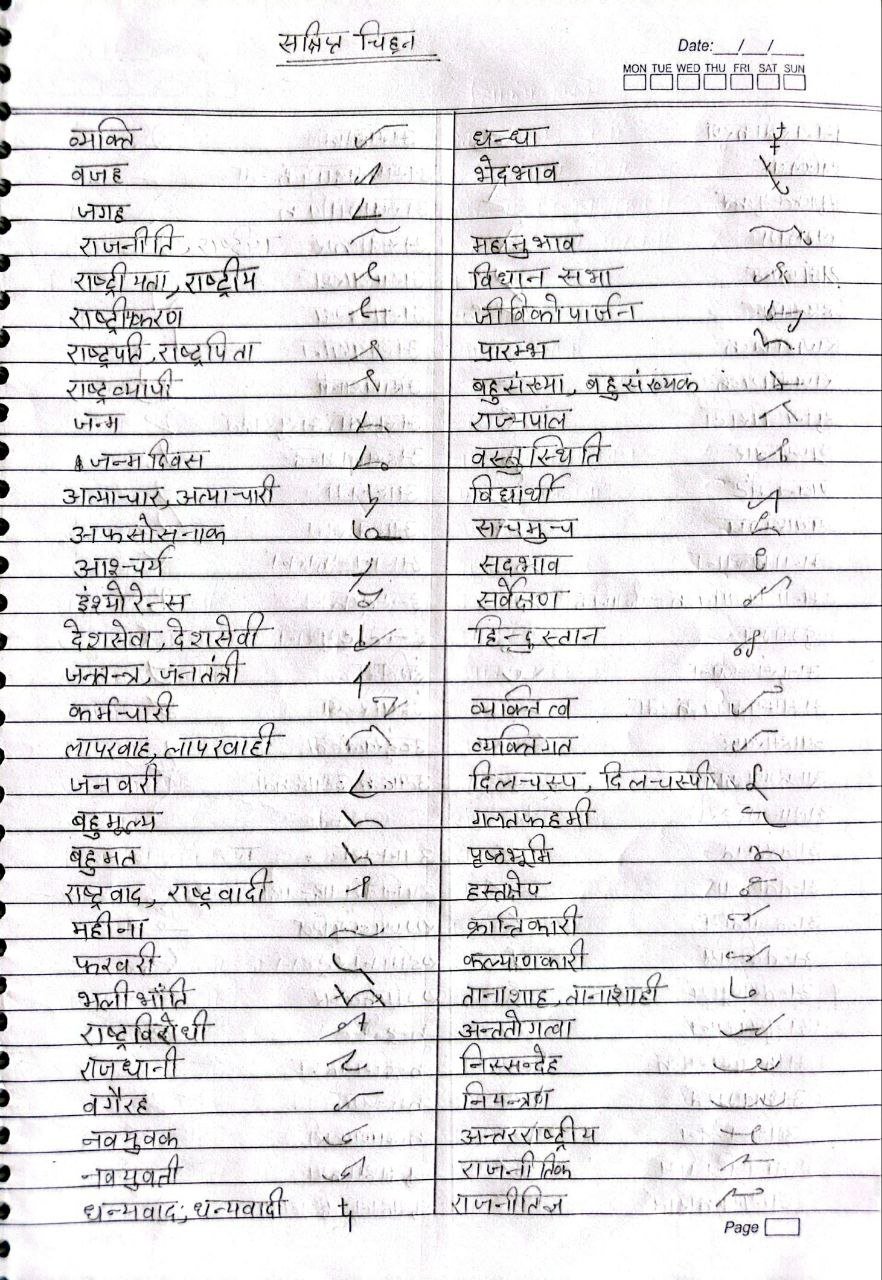 संक्षिप्त चिह्न
Date: __/__/__
MON TUE WED THU FRI SAT SUN
व्यक्ति
वजह
जगह
राजनीति
राष्ट्रीयता, राष्ट्रीय
राष्ट्रीकरण
राष्ट्रपति, राष्ट्रपिता
राष्ट्रव्यापी
जन्म
जन्म दिवस
अत्याचार, अत्याचारी
अफसोसनाक
आश्चर्य
इंश्योरेन्स
देशसेवा, देशसेवी
जनतन्त्र, जनतंत्री
कर्मचारी
लापरवाह, लापरवाही
जनवरी
बहुमूल्य
बहुमत
राष्ट्रवाद, राष्ट्रवादी
महीना
फरवरी
भली भाँति
राष्ट्रविरोधी
राजधानी
वगैरह
नवयुवक
नवयुवती
धन्यवाद, धन्यवादी
धन्धा
भेदभाव
महानुभाव
विधान सभा
जीविकोपार्जन
पारम्भ
बहुसंख्या, बहुसंख्यक
राज्यपाल
वस्तुस्थिति
विद्यार्थी
सचमुच
सदभाव
सर्वेक्षण
हिन्दुस्तान
व्यक्तित्व
व्यक्तिगत
दिलचस्प, दिलचस्पी
गलतफहमी
पृष्ठभूमि
हस्तक्षेप
क्रान्तिकारी
कल्याणकारी
तानाशाह, तानाशाही
अन्ततोगत्वा
निस्सन्देह
नियन्त्रण
अन्तरराष्ट्रीय
राजनीतिक
राजनीतिज्ञ
Page